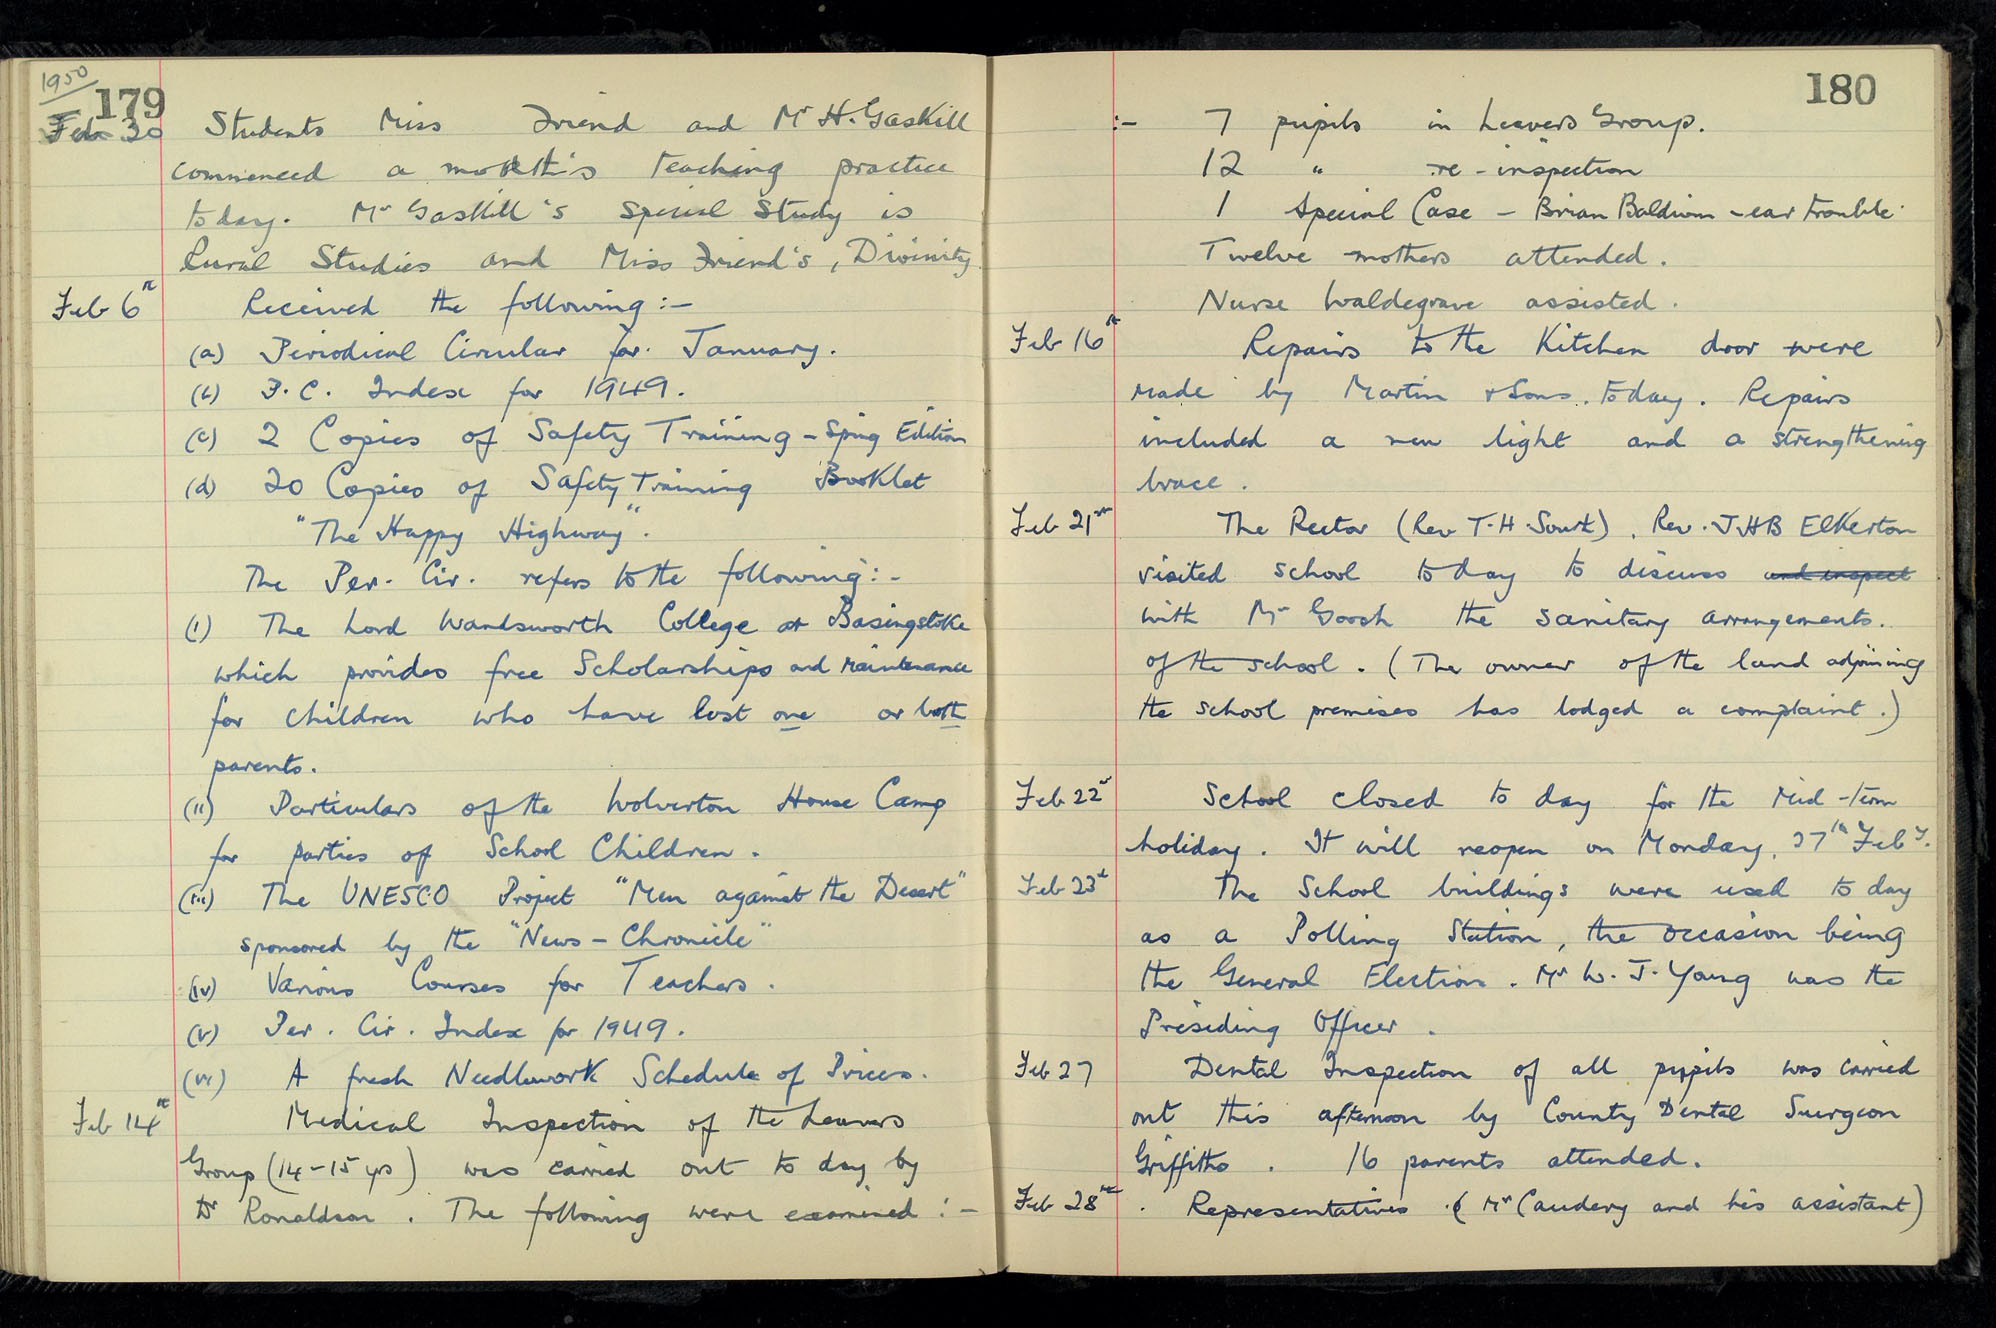 1950
179
Feb 20 Students Miss Friend and Mr H. Gaskill
commenced a month's teaching practice
today. Mr Gaskill's special study is
Rural Studies and Miss Friend's, Divinity.
Feb 6th Received the following :-
(a) Periodical Circular for January.
(b) P.C. Index for 1949.
(c) 2 Copies of Safety Training - Spring Edition
(d) 20 Copies of Safety Training Booklet
"The Happy Highway".
The Per. Cir. refers to the following :-
(i) The Lord Wandsworth College at Basingstoke
which provides free Scholarships and maintenance
for children who have lost one or both
parents.
(ii) Particulars of the Wolverton House Camp
for parties of School Children.
(iii) The UNESCO Project "Men against the Desert"
sponsored by the "News - Chronicle"
(iv) Various Courses for Teachers.
(v) Per. Cir. Index for 1949.
(vi) A fresh Needlework Schedule of Prices.
Feb 14th Medical Inspection of the Leavers
Group (14-15 yrs) was carried out to day by
Dr Ronaldson. The following were examined :-
180
:- 7 pupils in Leavers Group.
12 " re-inspection
1 Special Case - Brian Baldwin - ear trouble.
Twelve mothers attended.
Nurse Waldegrave assisted.
Feb 16th Repairs to the Kitchen door were
made by Martin & Sons. today. Repairs
included a new light and a strengthening
brace.
Feb 21st The Rector (Rev T.H. ), Rev. J.H.B Elkerton
visited school today to discuss and inspect
with Mr Gooch the sanitary arrangements.
of the school. (The owner of the land adjoining
the school premises has lodged a complaint.)
Feb 22nd School closed to day for the Mid-term
holiday. It will reopen on Monday, 27th Feby.
Feb 23rd The School buildings were used to day
as a Polling Station, the occasion being
the General Election. Mr W. J. Young was the
Presiding Officer.
Feb 27 Dental Inspection of all pupils was carried
out this afternoon by County Dental Surgeon
Griffiths. 16 parents attended.
Feb 28th Representatives (Mr Caudery and his assistant)